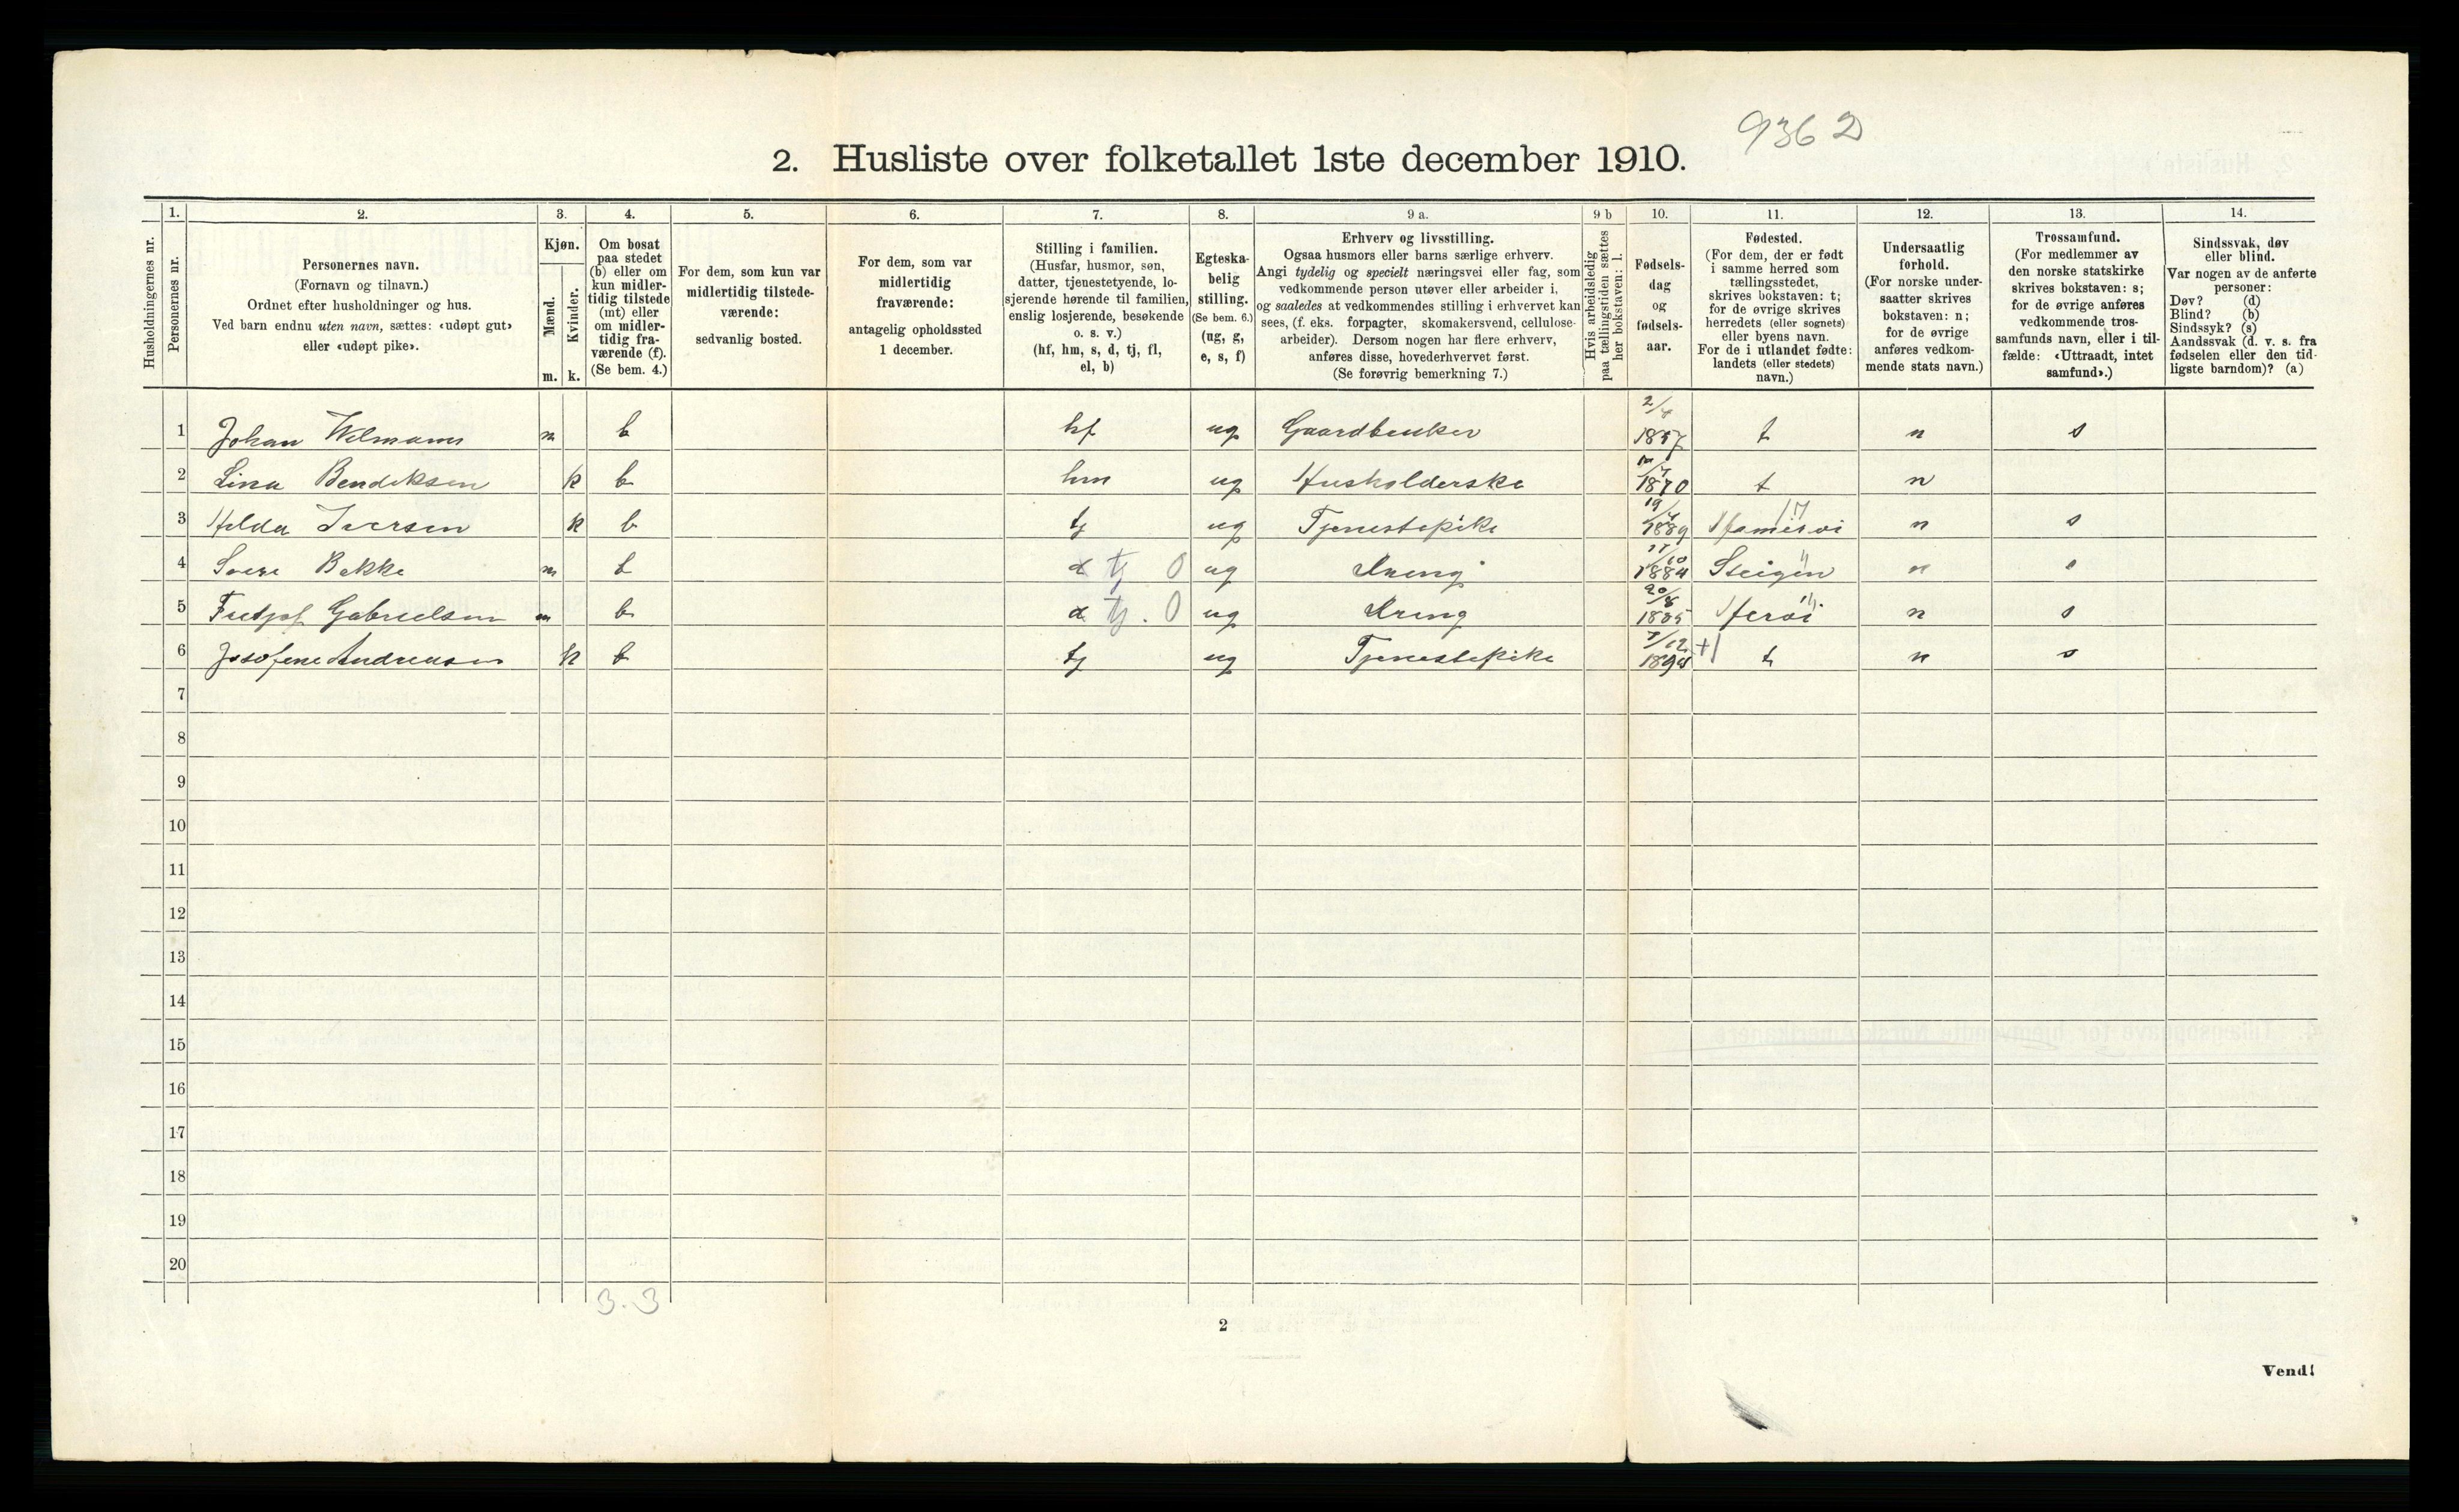 9362
2. Husliste over folketallet 1ste december 1910.
Husholdningernes nr.
1. Personernes nr.
2. Personernes navn.
(Fornavn og tilnavn.)
Ordnet efter husholdninger og hus.
Ved barn endnu uten navn, sættes: «udøpt gut»
eller «udøpt pike».
3. Kjøn.
Mænd. m.
Kvinder. k.
4. Om bosat
paa stedet
(b) eller om
kun midler-
tidig tilstede
(mt) eller
om midler-
tidig fra-
værende (f).
(Se bem. 4.)
5. For dem, som kun var
midlertidig tilstede-
værende:
sedvanlig bosted.
6. For dem, som var
midlertidig
fraværende:
antagelig opholdssted
1 december.
7. Stilling i familien.
(Husfar, husmor, søn,
datter, tjenestetyende, lo-
sjerende hørende til familien,
enslig losjerende, besøkende
o. s. v.)
(hf, hm, s, d, tj, fl,
el, b)
8. Egteska-
belig
stilling.
(Se bem. 6.)
(ug, g,
e, s, f)
9 a. Erhverv og livsstilling.
Ogsaa husmors eller barns særlige erhverv.
Angi tydelig og specielt næringsvei eller fag, som
vedkommende person utøver eller arbeider i,
og saaledes at vedkommendes stilling i erhvervet kan
sees, (f. eks. forpagter, skomakersvend, cellulose-
arbeider). Dersom nogen har flere erhverv,
anføres disse, hovederhvervet først.
(Se forøvrig bemerkning 7.)
9 b Hvis arbeidsledig
paa tællingstiden sættes
her bokstaven: l.
10. Fødsels-
dag
og
fødsels-
aar.
11. Fødested.
(For dem, der er født
i samme herred som
tællingsstedet,
skrives bokstaven: t;
for de øvrige skrives
herredets (eller sognets)
eller byens navn.
For de i utlandet fødte:
landets (eller stedets)
navn.)
12. Undersaatlig
forhold.
(For norske under-
saatter skrives
bokstaven: n;
for de øvrige
anføres vedkom-
mende stats navn.)
13. Trossamfund.
(For medlemmer av
den norske statskirke
skrives bokstaven: s;
for de øvrige anføres
vedkommende tros-
samfunds navn, eller i til-
fælde: «Uttraadt, intet
samfund».)
14. Sindssvak, døv
eller blind.
Var nogen av de anførte
personer:
Døv? (d)
Blind? (b)
Sindssyk? (s)
Aandssvak (d. v. s. fra
fødselen eller den tid-
ligste barndom)? (a)
1 Johan m b hf ug Gaardbruker 1857 t n s
2 Lina Bendiksen k b hm ug Husholderske 1870 t n
3 Hilda Iversen k b tj ug Tjenestepike 19/ 1889 n s
4 Bakke m b d tj 0 ug Dreng 10 1884 Steigen n s
5 Gabrielsen m b d tj. 0 ug Dreng 20/8 1885 Herøi n s
6 Josefine Andreasen k b tj ug Tjenestepike 7/12 t n s
7
8
9
10
11
12
13
14
15
16
17
18
19
20
3. 3
2
Vend!